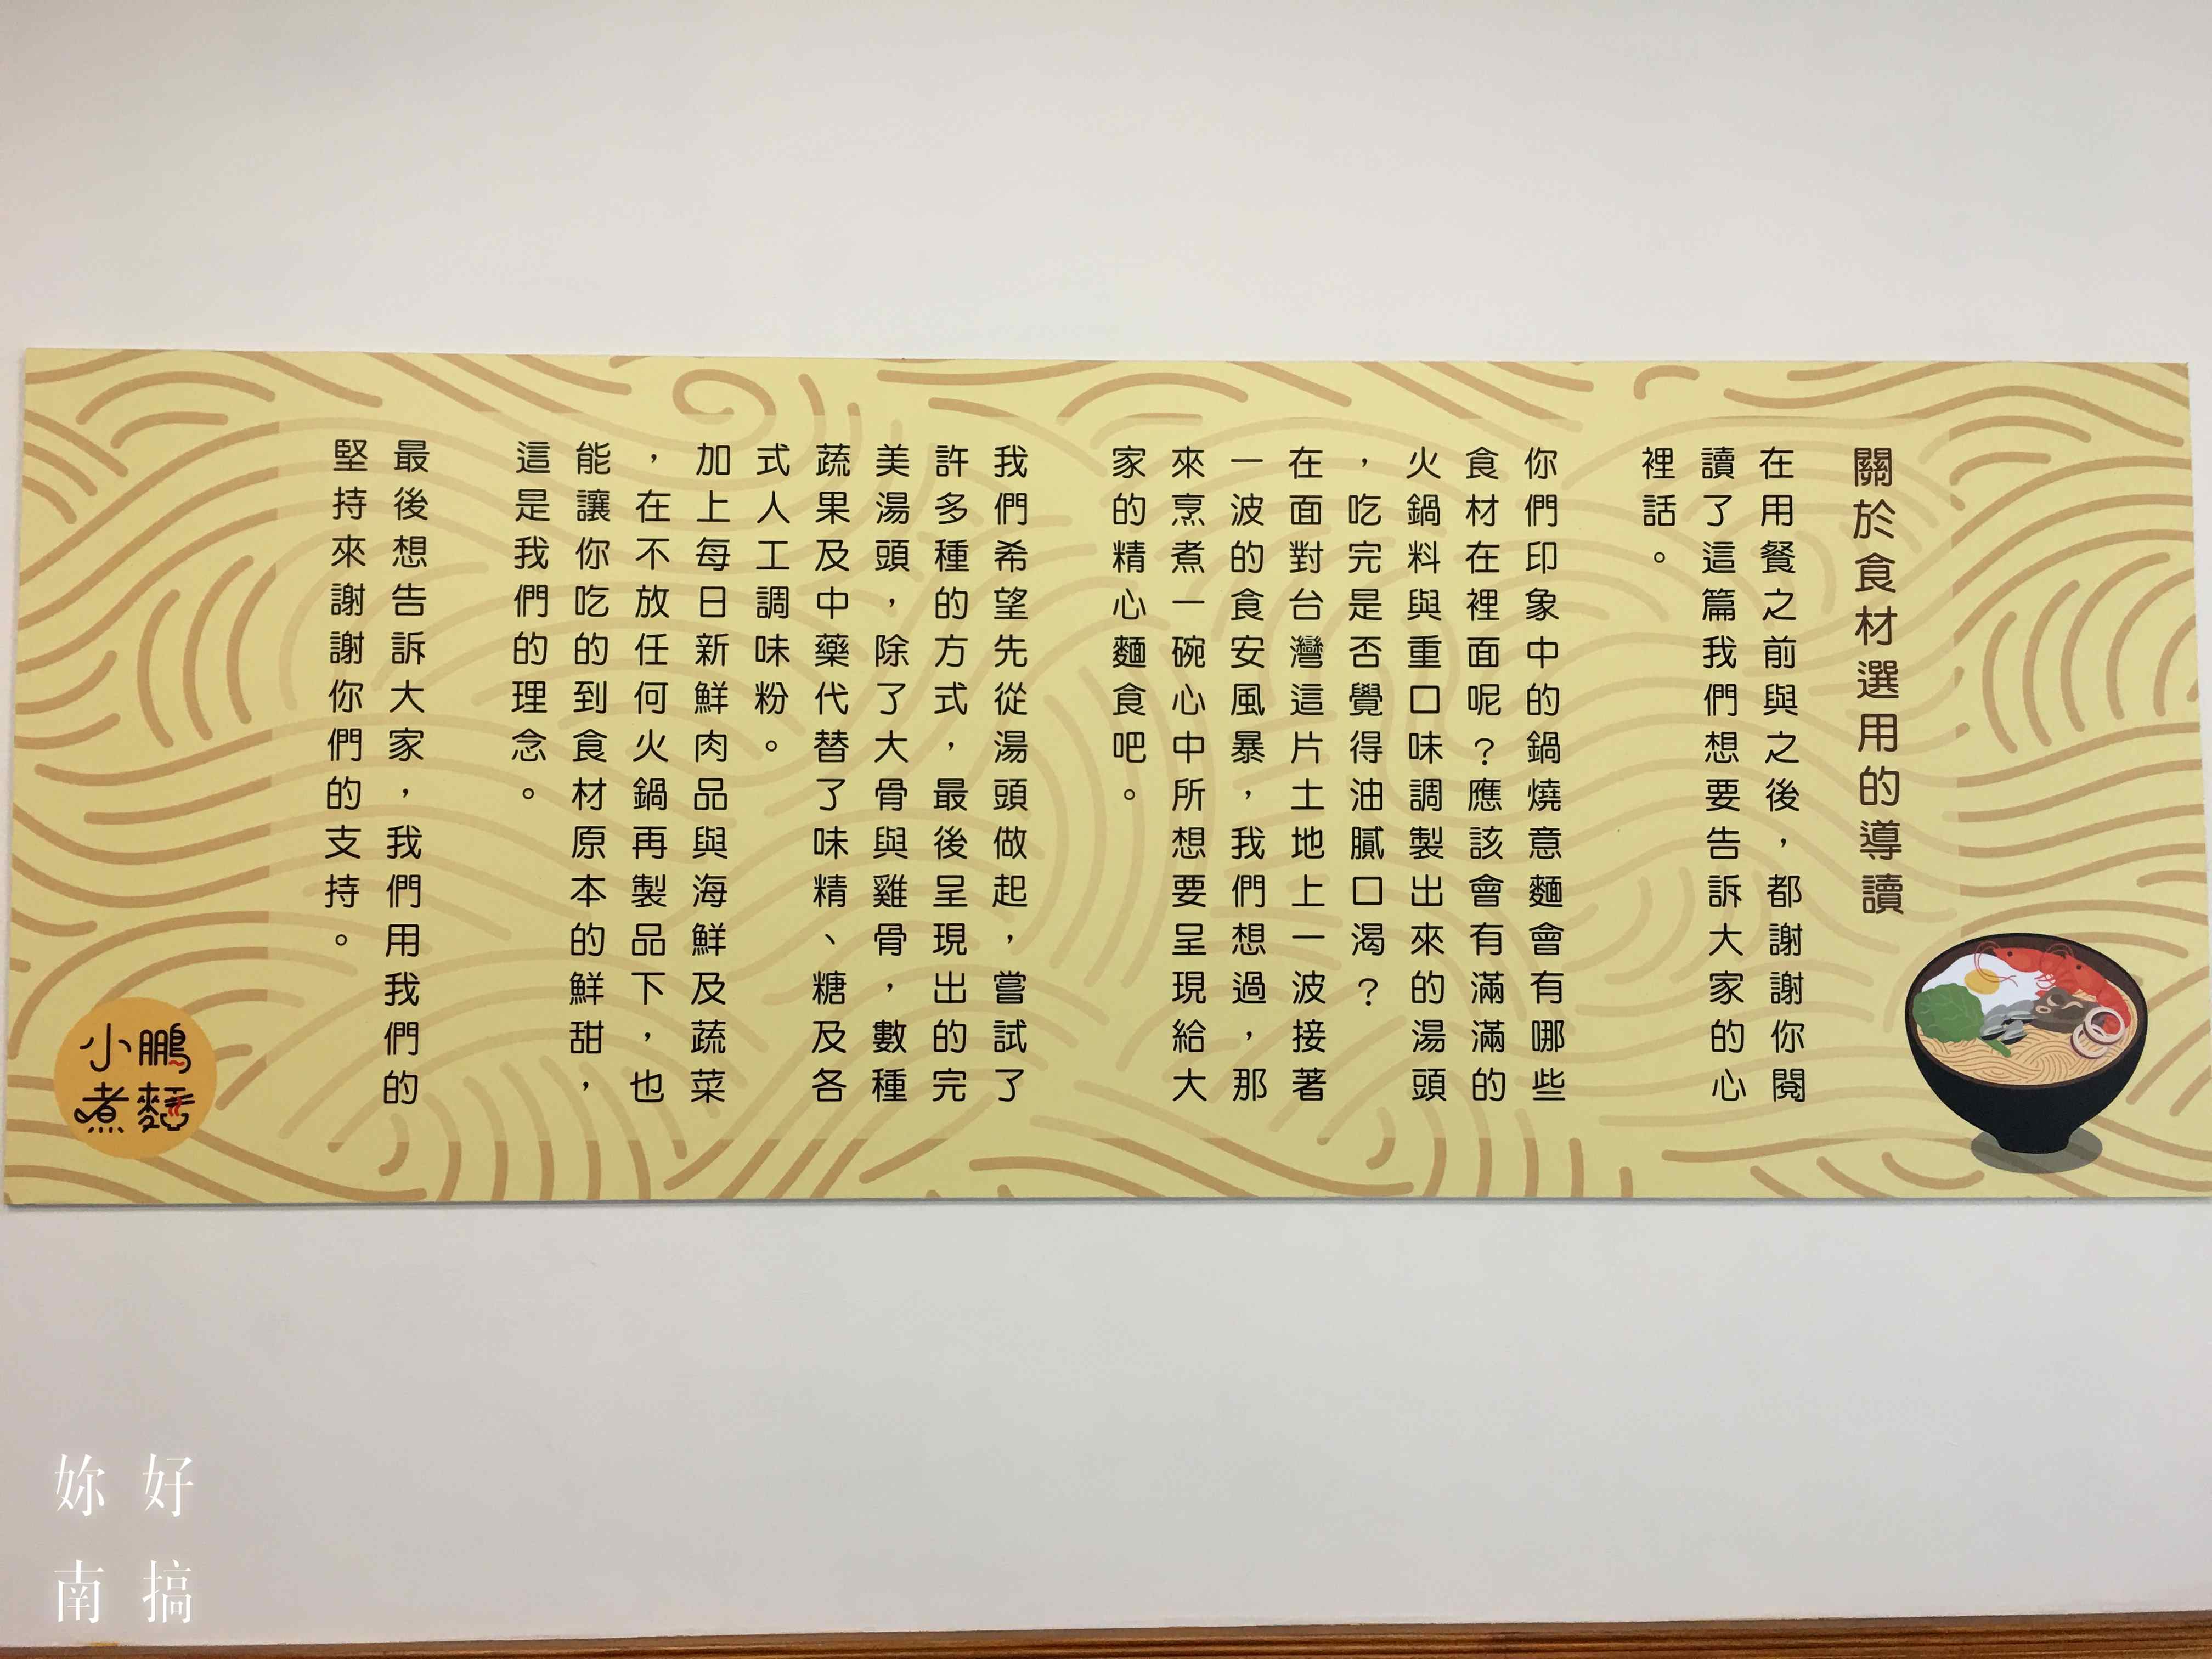 關於食材選用的導讀
在用餐之前與之後，都謝謝你閱
讀了這篇我們想要告訴大家的心
裡話。
你們印象中的鍋燒意麵會有哪些
食材在裡面呢？應該會有滿滿的
火鍋料與重口味調製出來的湯頭
，吃完是否覺得油膩口渴？
在面對台灣這片土地上一波接著
一波的食安風暴，我們想過，那
來烹煮一碗心中所想要呈現給大
家的精心麵食吧。
我們希望先從湯頭做起，嘗試了
許多種的方式，最後呈現出的完
美湯頭，除了大骨與雞骨，數種
蔬果及中藥代替了味精、糖及各
式人工調味粉。
加上每日新鮮肉品與海鮮及蔬菜
，在不放任何火鍋再製品下，也
能讓你吃的到食材原本的鮮甜，
這是我們的理念。
最後想告訴大家，我們用我們的
堅持來謝謝你們的支持。
小鵬
煮麵
妳好
南搞